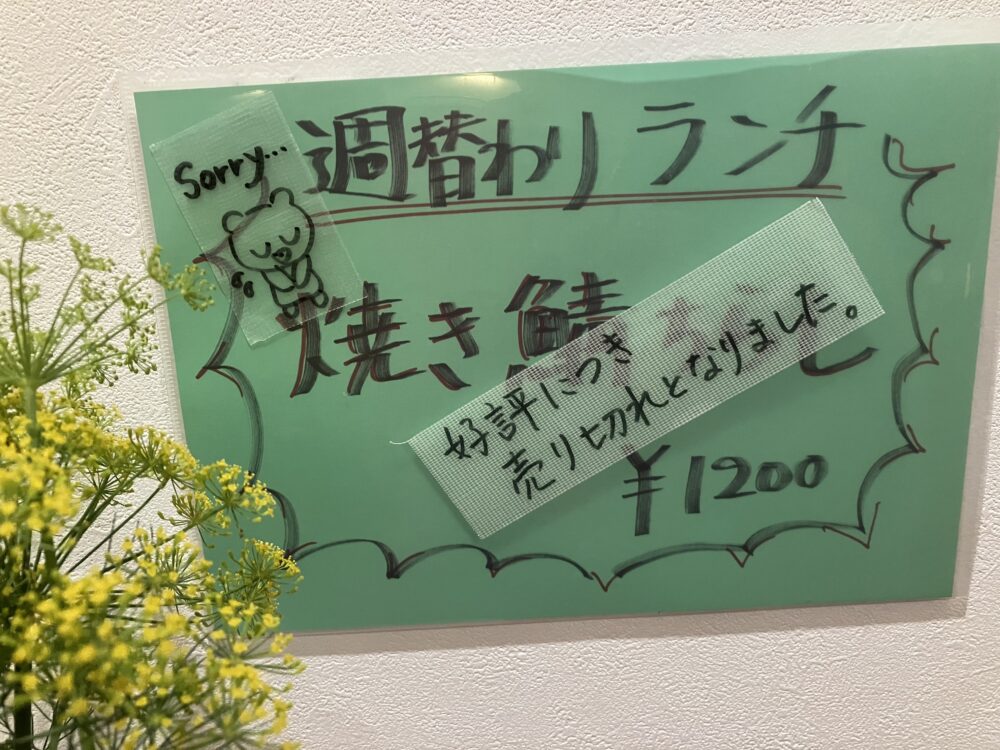 Sorry…
週替わりランチ
焼き鯖
好評につき
売り切れとなりました。
¥1200